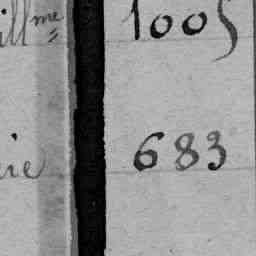 ill^me 1005
ire 683